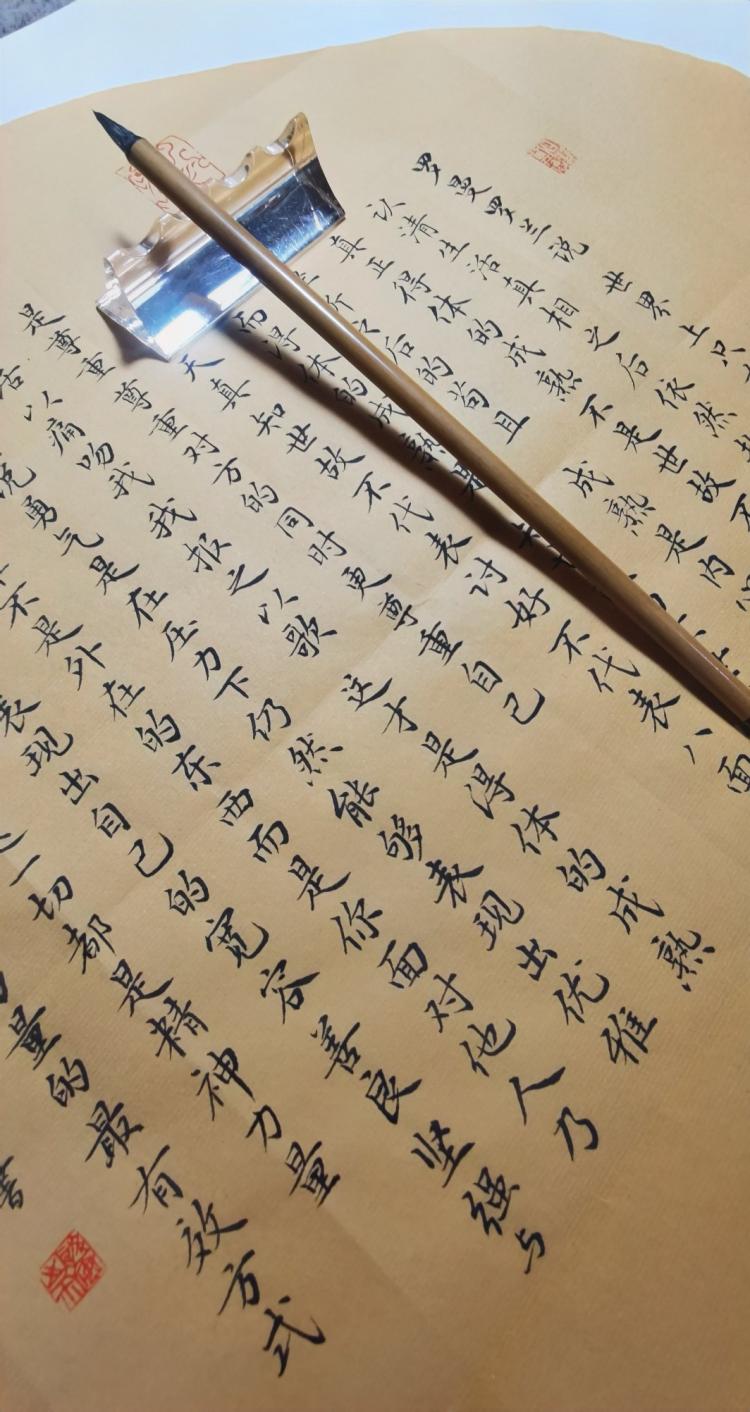 罗曼罗兰说世界上只
认清生活真相之后依然
真正得体的成熟不是世故
之后的苟且成熟是内
而得体的成熟是
天真知世故不代表讨好不代表八面
是尊重尊重对方的同时更尊重自己
以痛吻我我报之以歌这才是得体的成熟
说勇气是在压力下仍然能够表现出优雅
不是外在的东西而是你面对他人乃
表现出自己的宽容善良坚强与
一切都是精神力量
量的最有效方式